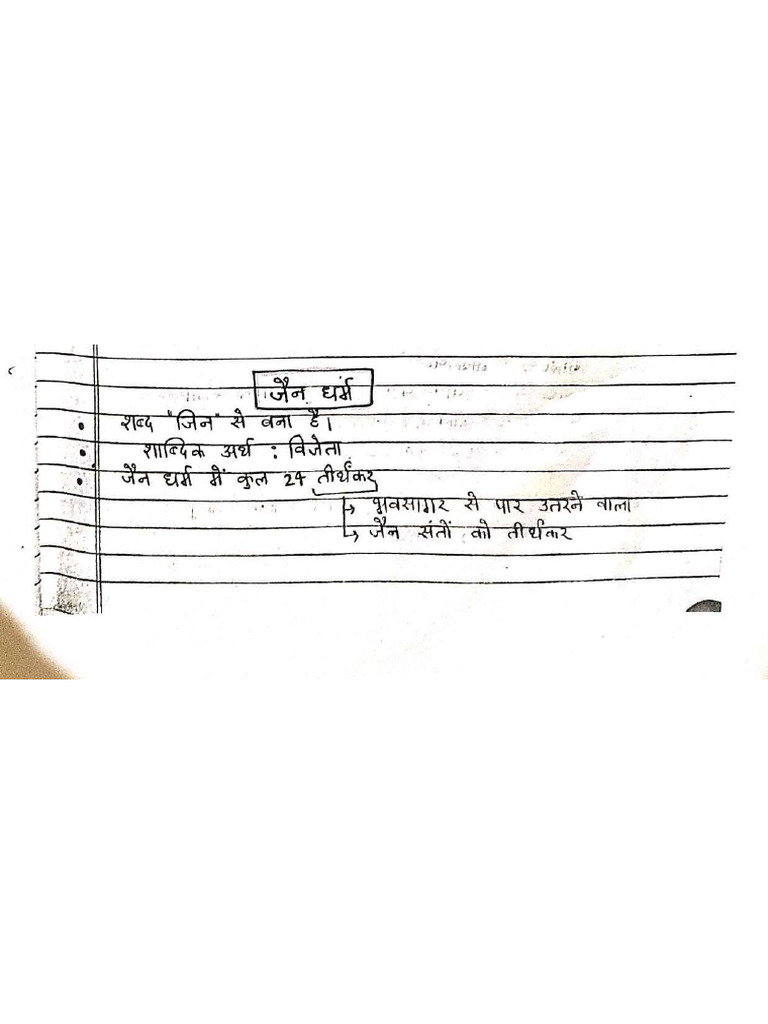 जैन धर्म
• शब्द "जिन" से बना है।
• शाब्दिक अर्थ : विजेता
• जैन धर्म में कुल 24 तीर्थंकर
↳ भवसागर से पार उतरने वाला
↳ जैन संतों को तीर्थकर